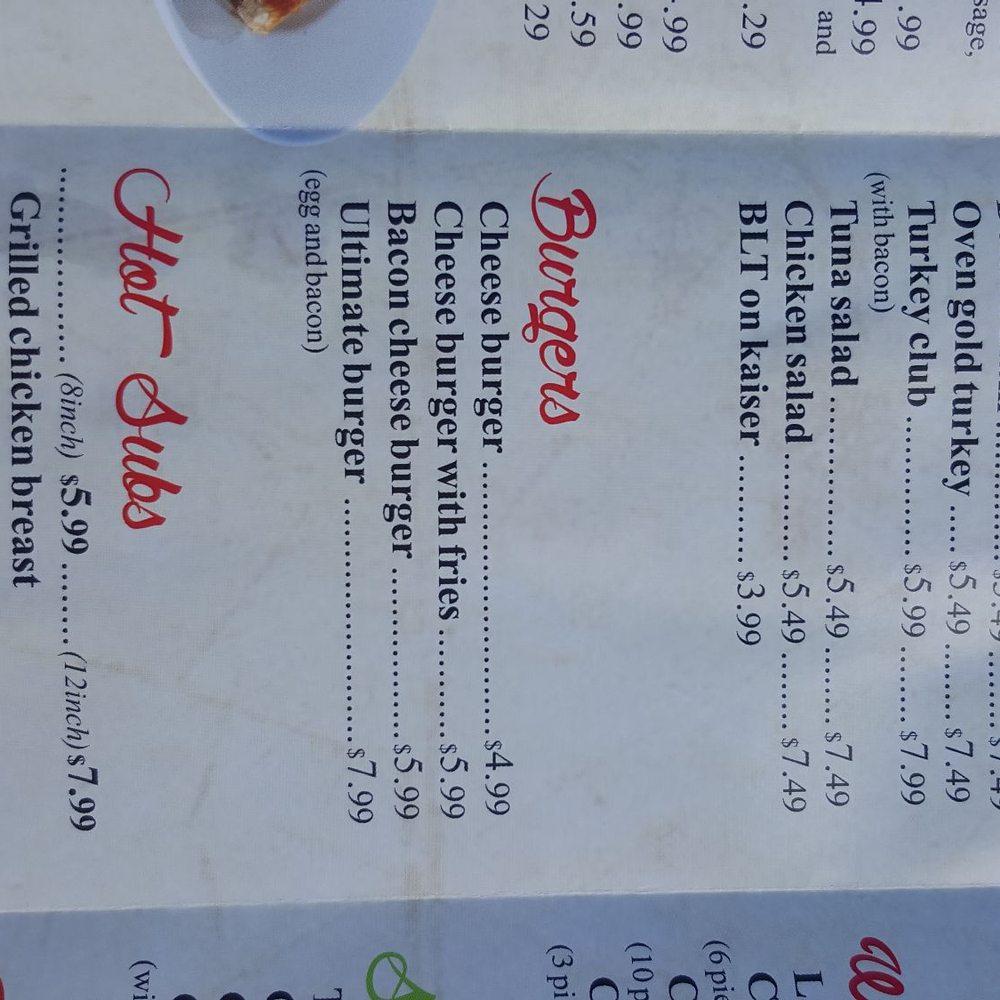 sage,
.99
.99
and
.29
.99
.99
.59
.29
Oven gold turkey ..... $5.49 ........ $7.49
Turkey club ............. $5.99 ........ $7.99
(with bacon)
Tuna salad ............... $5.49 ........ $7.49
Chicken salad ........... $5.49 ........ $7.49
BLT on kaiser .......... $3.99
Burgers
Cheese burger ............................ $4.99
Cheese burger with fries .......... $5.99
Bacon cheese burger ................. $5.99
Ultimate burger ......................... $7.99
(egg and bacon)
Hot Subs
.................... (8inch) $5.99 ........ (12inch) $7.99
Grilled chicken breast
(10 p
(3 pi
(wi